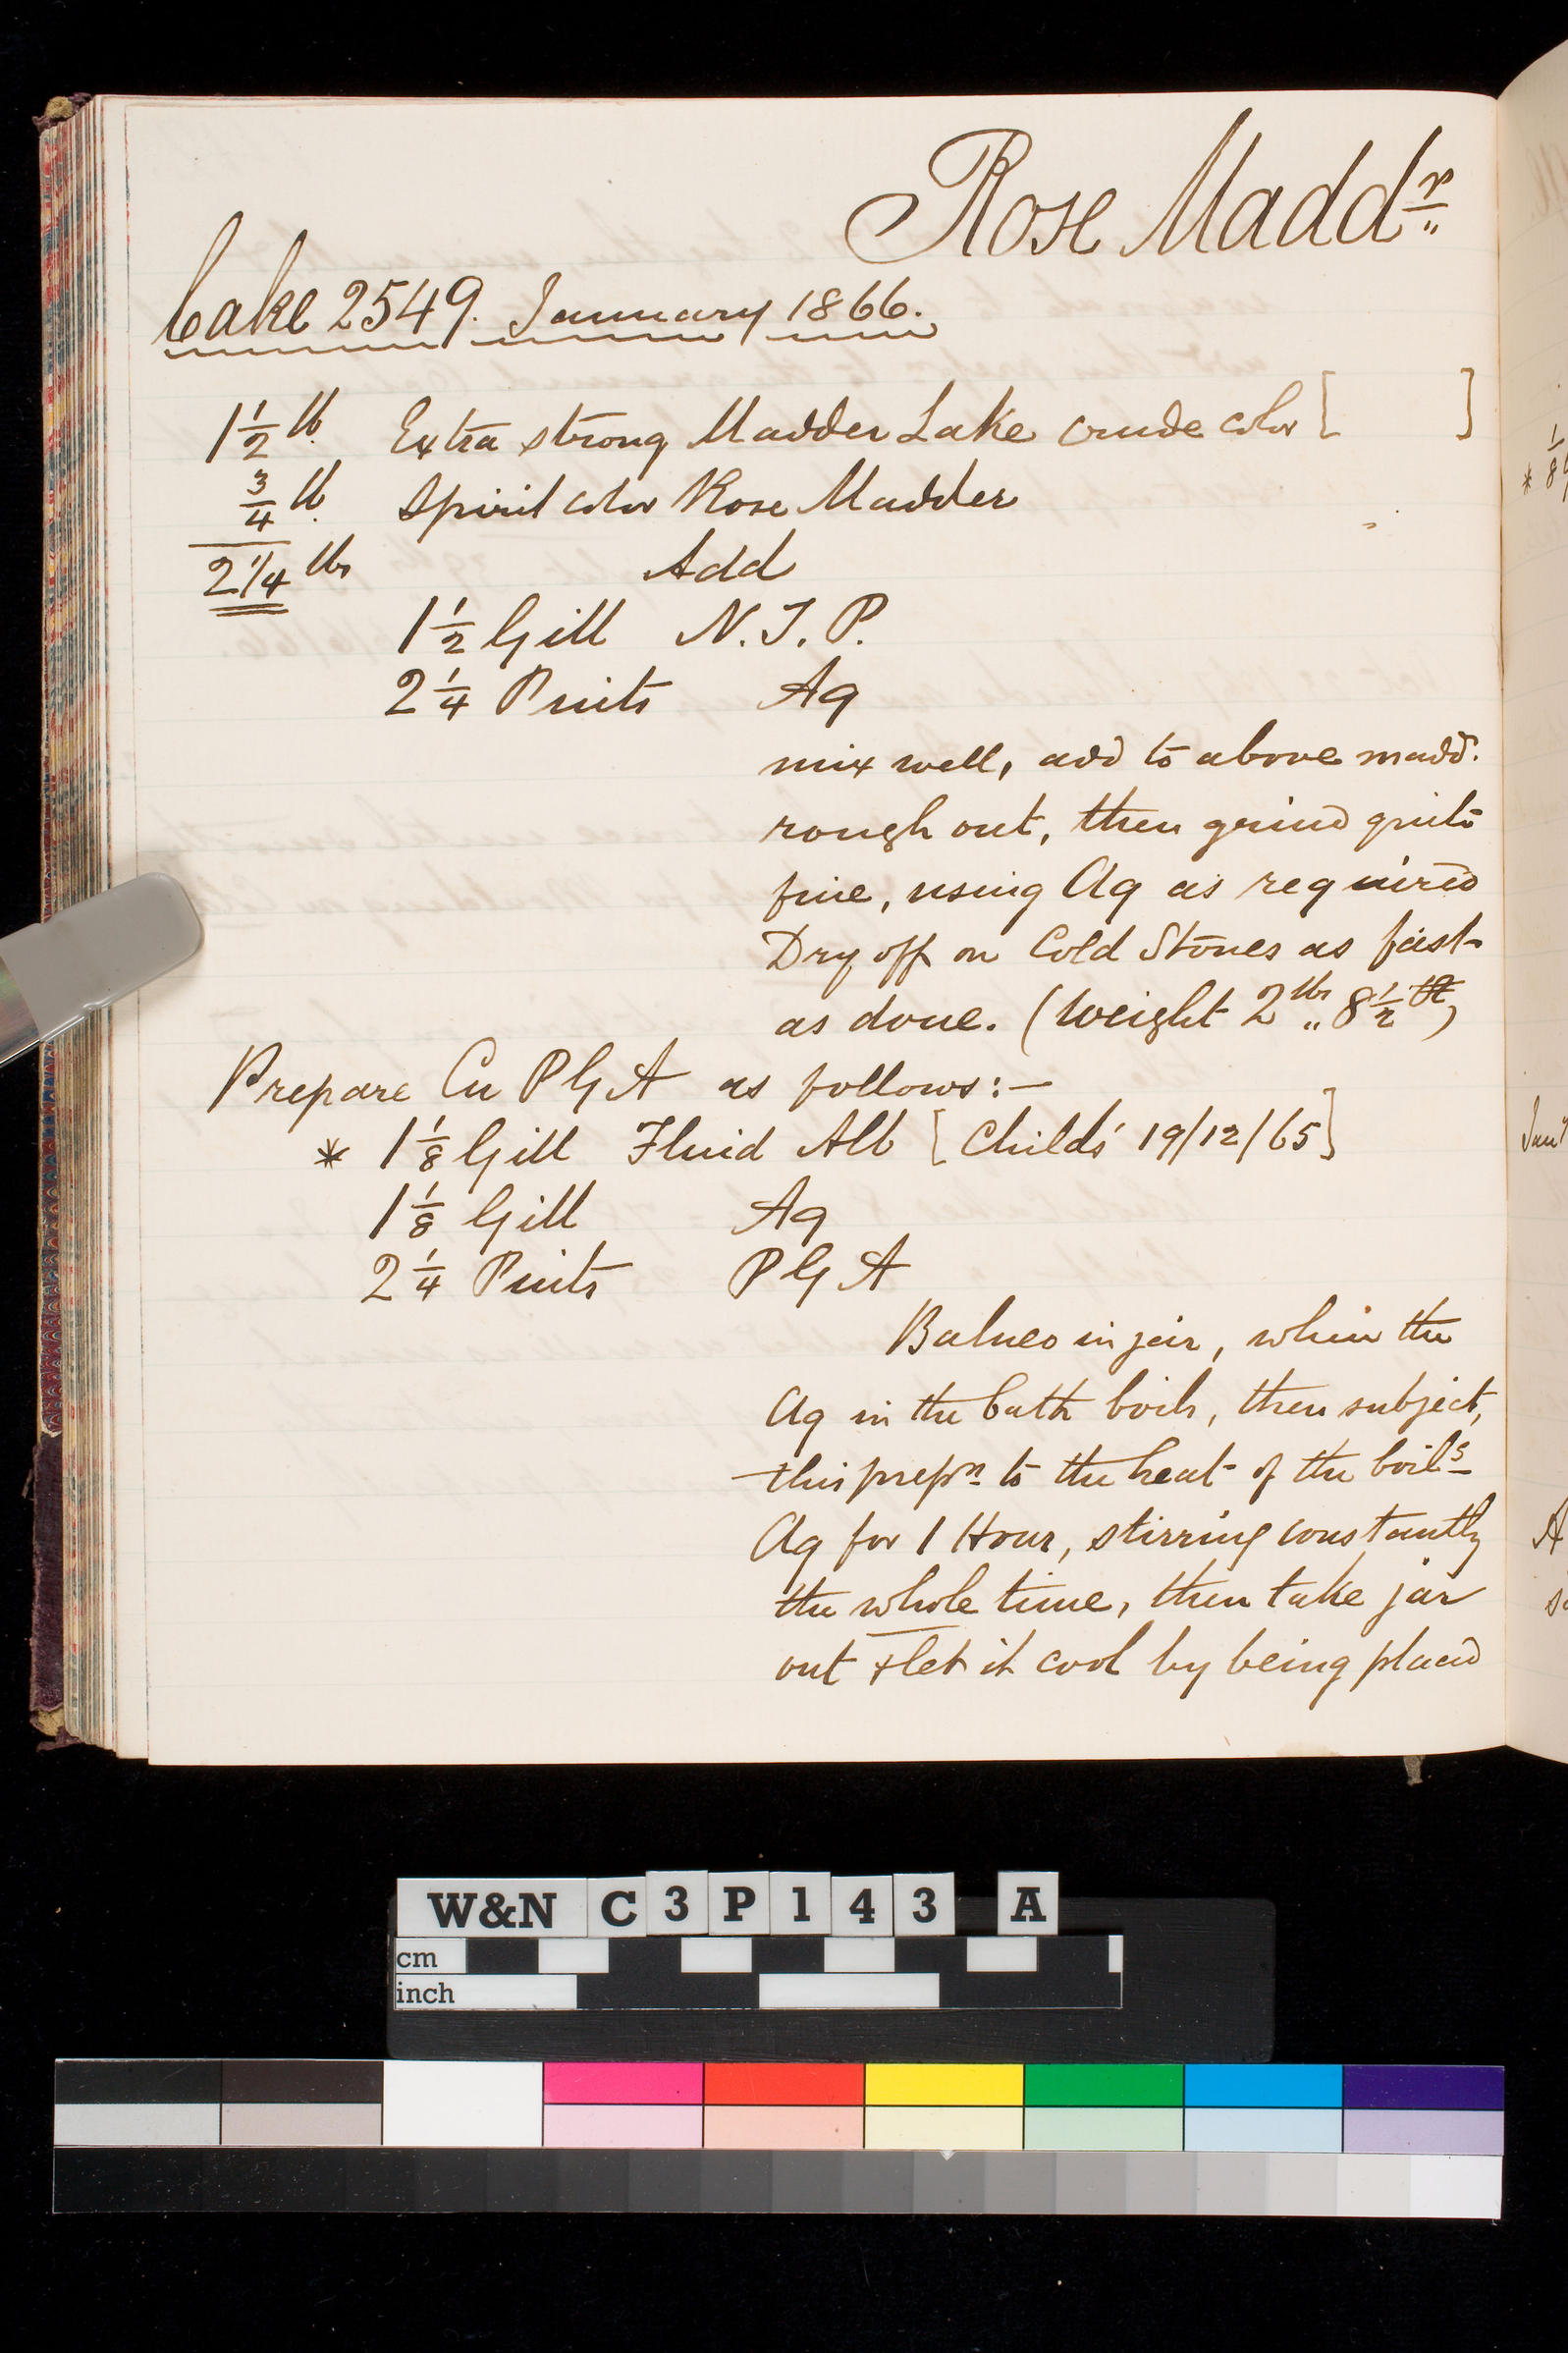 Rose Maddr
Cake 2549. January 1866.
1 1/2 lb. Extra strong Madder Lake crude color [ ]
3/4 lb. Spirit color Rose Madder
2 1/4 lbs Add
1 1/2 Gill N. T. P.
2 1/4 Pints Aq
mix well, add to above madd.
rough out, then grind quite
fine, using Aq as required
Dry off on Cold Stones as fast
as done. (Weight 2 lbs 8 1/2
Prepare Cu P G A as follows:—
* 1 1/8 Gill Fluid Alb [Childs' 19/12/65]
1 1/8 Gill Aq
2 1/4 Pints P G A
Balneo in jar, when the
Aq in the bath boils, then subject,
this prepn to the heat of the boilg
Aq for 1 Hour, stirring constantly
the whole time, then take jar
out + let it cool by being placed
* 1/8
Jan
A
W&N C 3 P 1 4 3 A
cm
inch